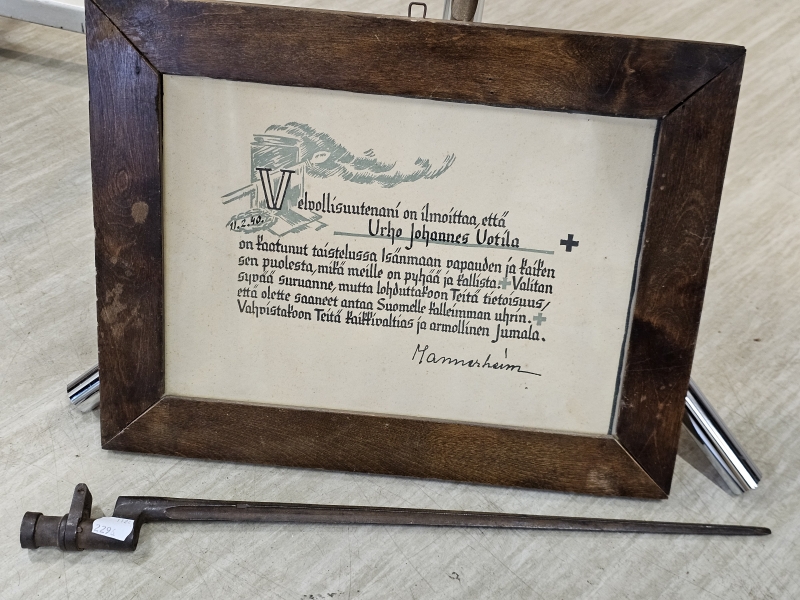 Velvollisuutenani on ilmoittaa, että
11.2.40.
Urho Johannes Uotila
on kaatunut taistelussa Isänmaan vapauden ja kaiken
sen puolesta, mikä meille on pyhää ja kallista. Valitan
syvää suruanne, mutta lohduttakoon Teitä tietoisuus,
että olette saaneet antaa Suomelle kalleimman uhrin.
Vahvistakoon Teitä kaikkivaltias ja armollinen Jumala.
Mannerheim